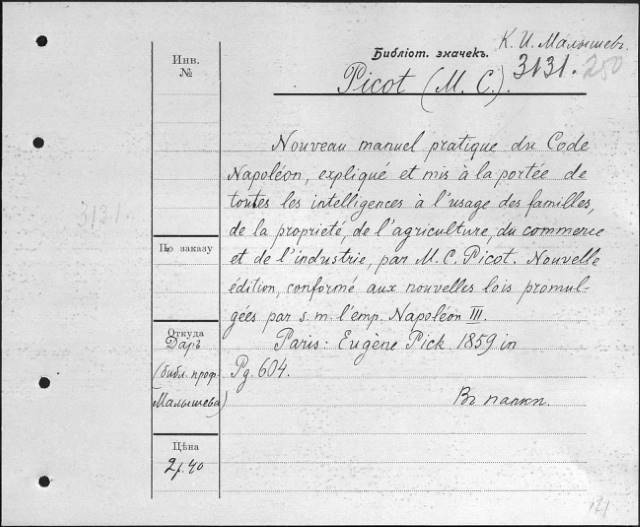 К. И. Малышевъ
Библіот. значекъ.
3131. 250
Picot (M. C.).
Инв.
№
Nouveau manuel pratique du Code
Napoléon, expliqué et mis à la portée de
toutes les intelligences à l'usage des familles,
de la propriété, de l'agriculture, du commerce
et de l'industrie, par M. C. Picot. Nouvelle
édition, conformé aux nouvelles lois promul-
gées par s. m. l'emp. Napoléon III.
Paris: Eugène Pick 1859 in
Pg. 604.
Въ папкѣ.
3131
По заказу
Откуда
Даръ
(библ. проф.
Малышева)
Цѣна
2р. 40
121